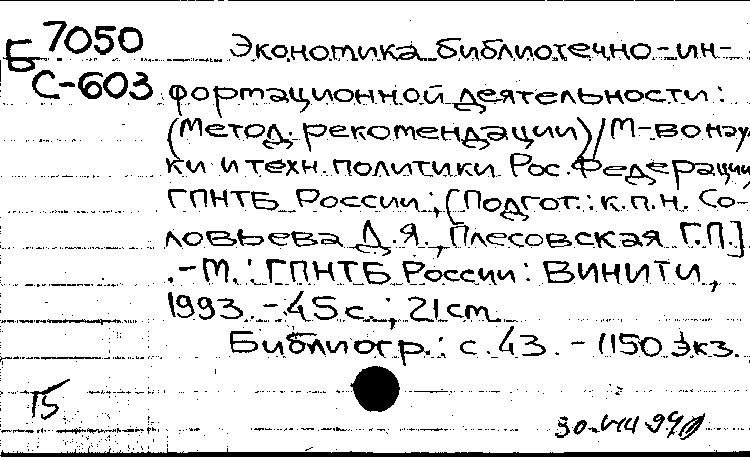 Б 7050
С-603
Экономика библиотечно-ин-
формационной деятельности:
(Метод. рекомендации)/М-во нау-
ки и техн. политики Рос. Федерации,
ГПНТБ России; [Подгот.: к.п.н. Со-
ловьева Д.Я., Плесовская Г.П.]
.-М.: ГПНТБ России: ВИНИТИ,
1993.-45с.; 21см
Библиогр.: с. 43. - 1150 экз.
15
30.VIII 94